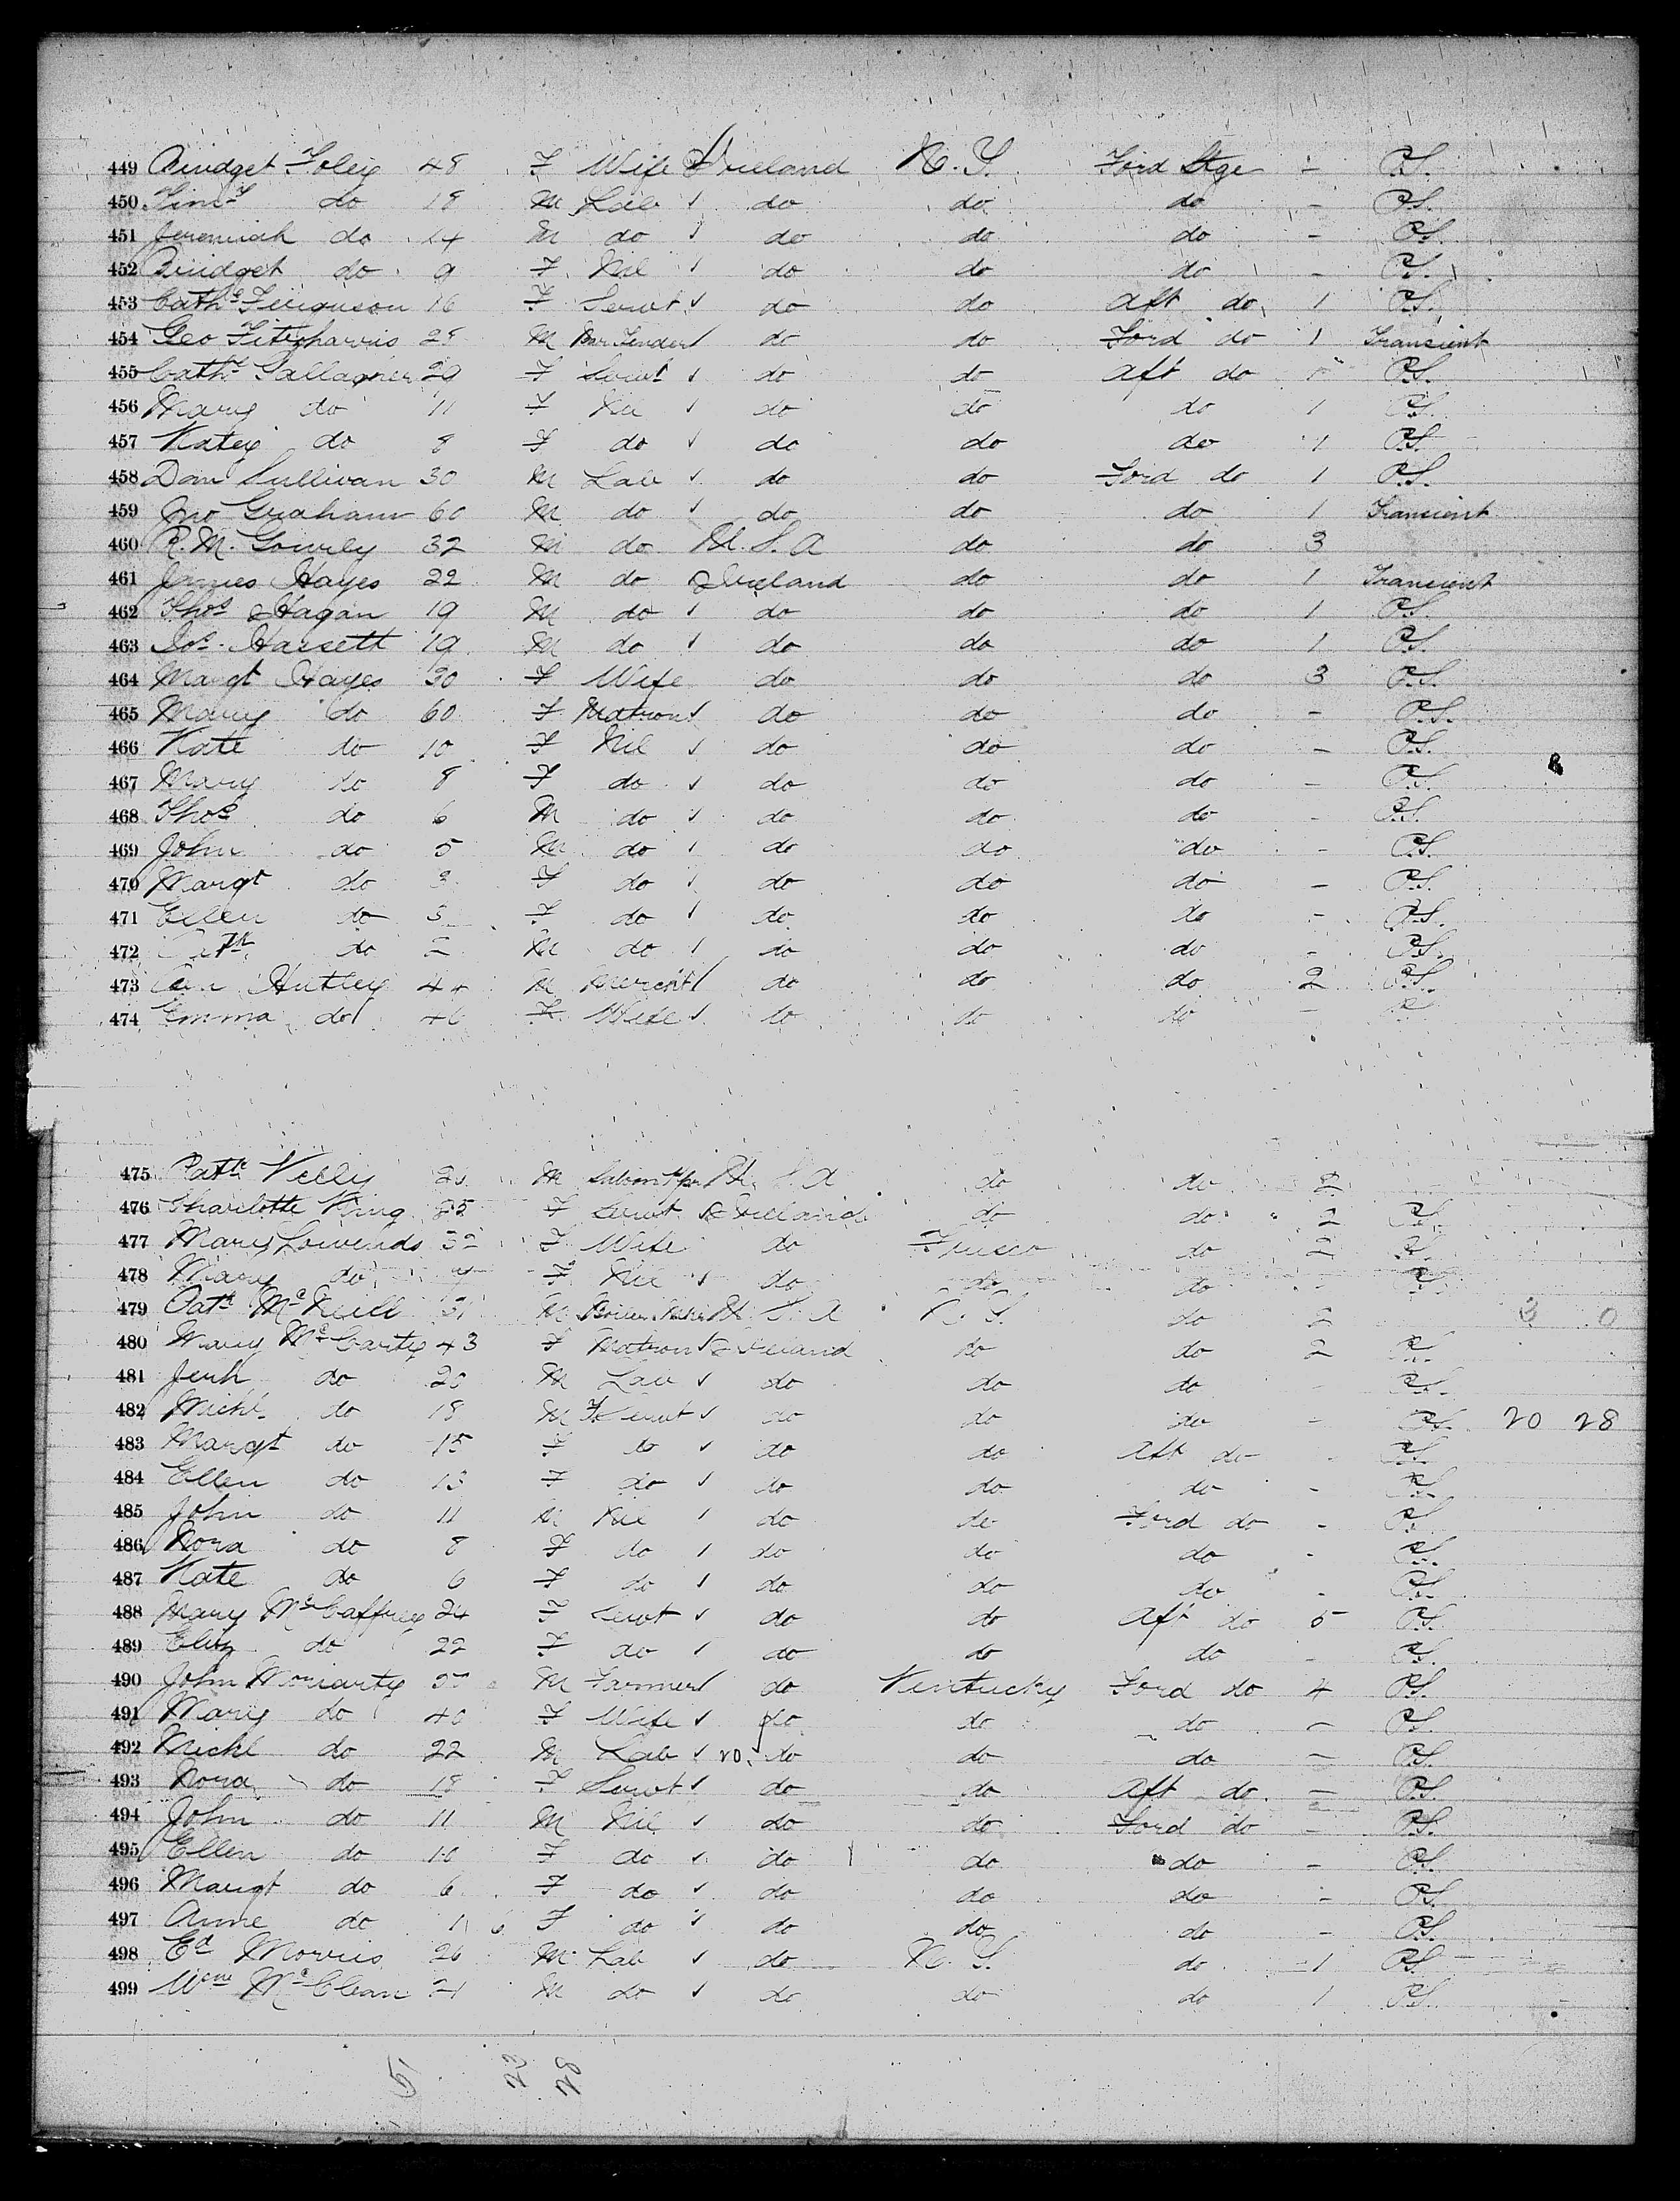 449 Bridget Foley 48 F Wife Ireland N.Y. Ford Stge - P.S.
450 Timy do 18 M Lab do do do - P.S.
451 Jeremiah do 14 M do do do do - P.S.
452 Bridget do 9 F Nil do do do - P.S.
453 Cathe Ferguson 16 F Servt do do aft do 1 P.S.
454 Geo Fitzharris 28 M Bar Tender do do Ford do 1 Transient
455 Cathe Gallagher 29 F Servt do do aft do P.S.
456 Mary do 11 F Nil do do do 1 P.S.
457 Katey do 8 F do do do do 1 P.S.
458 Dan Sullivan 30 M Lab do do Ford do 1 P.S.
459 Jno Graham 60 M do do do do 1 Transient
460 R. M. Gourly 32 M do U.S.A do do 3
461 James Hayes 22 M do Ireland do do 1 Transient
462 Thos Hagan 19 M do do do do 1 P.S.
463 Jos. Harsett 19 M do do do do 1 P.S.
464 Margt Hayes 30 F Wife do do do 3 P.S.
465 Mary do 60 F Matron do do do - P.S.
466 Kate do 10 F Nil do do do - P.S.
467 Mary do 8 F do do do do - P.S.
468 Thos do 6 M do do do do - P.S.
469 John do 5 M do do do do - P.S.
470 Margt do 3 F do do do do - P.S.
471 Ellen do 3 F do do do do - P.S.
472 do M do do do do - P.S.
473 Hutley M Mercht do do do 2 P.S.
474 Emma do F Wife do do do -
475 Patk Kelly M Saloon Kpr U.S.A do do 2
476 Charlotte King 25 F Servt Ireland do do 2 P.S.
477 Mary Lowends 32 F Wife do Frisco do 2 P.S.
478 Mary do F Nil do do do - P.S.
479 Patk McNeill 31 M Boiler Mkr U.S.A N.Y. do 2 3 0
480 Mary McCarty 43 F Matron Ireland do do 2 P.S.
481 Jerh do 20 M Lab do do do - P.S.
482 Michl do 18 M F Servt do do do - P.S. 20 28
483 Margt do 15 F do do do aft do - P.S.
484 Ellen do 13 F do do do do - P.S.
485 John do 11 M Nil do do Ford do - P.S.
486 Nora do 8 F do do do do - P.S.
487 Kate do 6 F do do do do - P.S.
488 Mary McCaffrey 24 F Servt do do aft do 5 P.S.
489 Eliz do 22 F do do do do - P.S.
490 John Moriarty M Farmer do Kentucky Ford do 4 P.S.
491 Mary do 40 F Wife do do do - P.S.
492 Michl do 22 M Lab 20. do do do - P.S.
493 Nora do 18 F Servt do do aft do - P.S.
494 John do 11 M Nil do do Ford do - P.S.
495 Ellen do 10 F do do do do - P.S.
496 Margt do 6 F do do do do - P.S.
497 Anne do F do do do do - P.S.
498 Ed Morris 26 M Lab do N.Y. do 1 P.S.
499 Wm McClean 21 M do do do do 1 P.S.
51 23 28